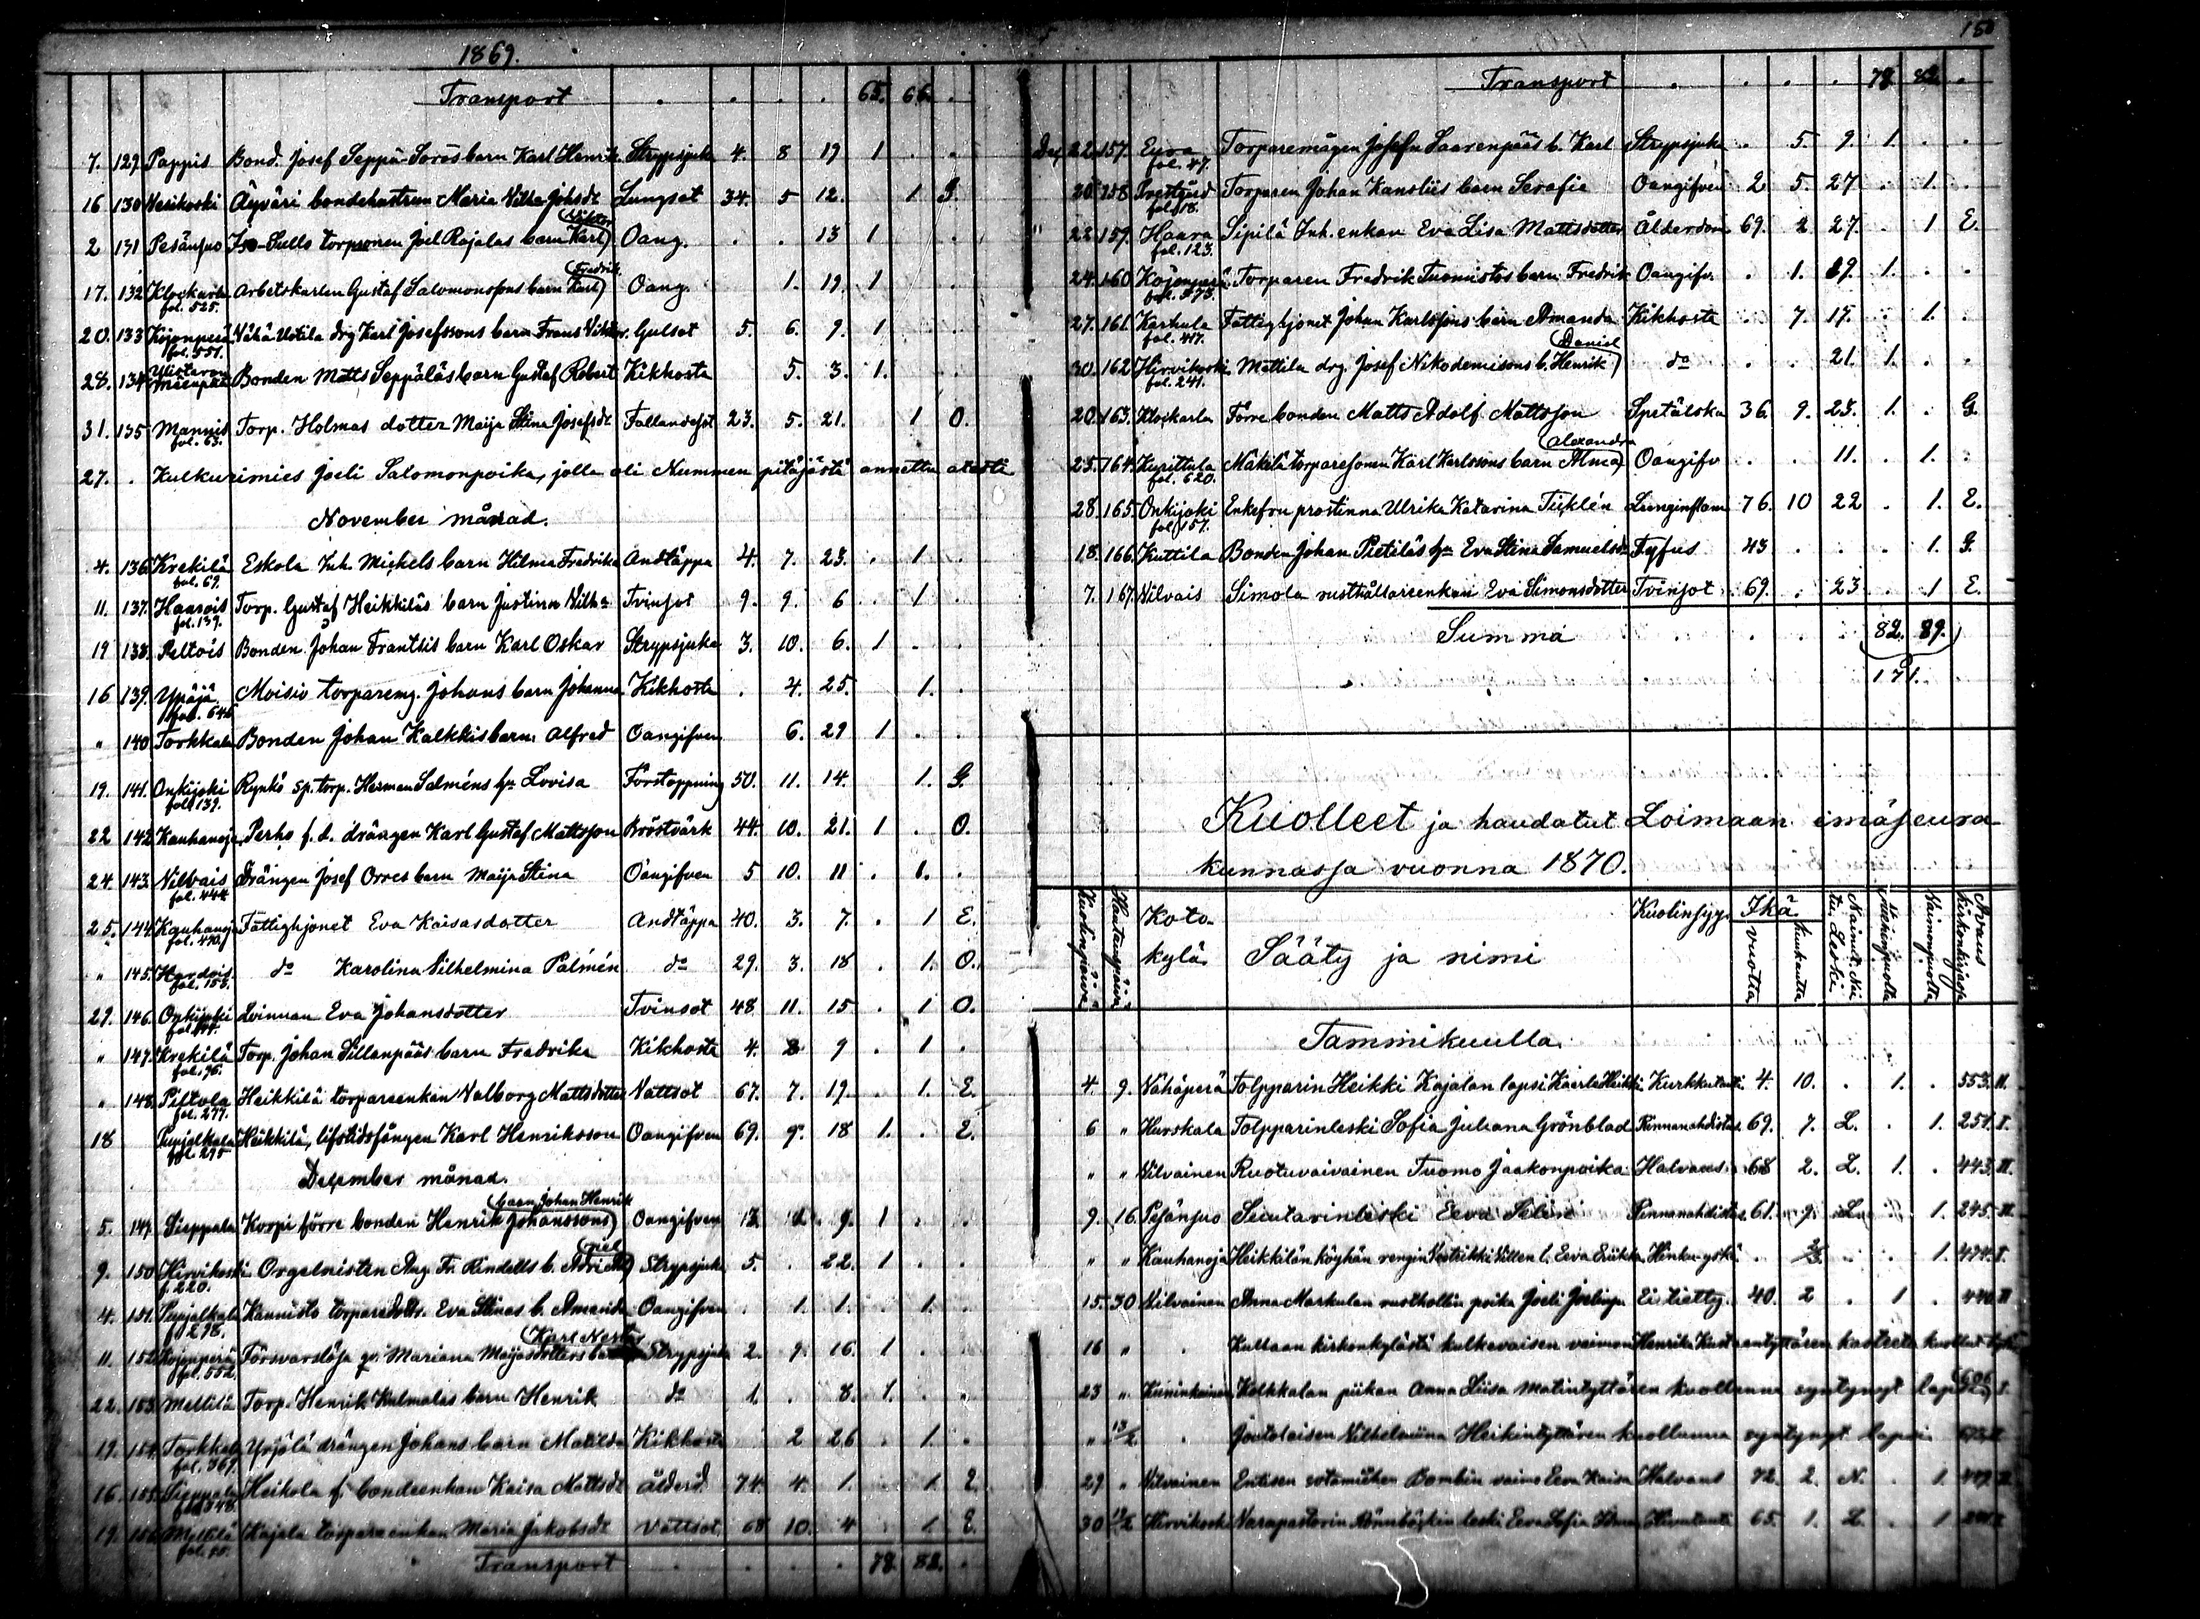 1869.
Transport . . . . 65. 66. .
7. 129. Pappis Bond. Josef Seppä-Soros barn Karl Henrik Strypsjuka 4. 8 19 1 . .
16 130 Vesikoski Äyväri bondehustrun Maria Vilha Johsdr Lungsot 34. 5 12. 1 G.
Viktor
2 131 Pesänsuo Iso-Sullo torpsonen Joel Rajalas barn Karl Oang. . . 13 1
Fredrik
17. 132 Klockarla Arbetskarlen Gustaf Salomonssons barn Karl Oang. 1. 19. 1
fol. 525.
20. 133 Kojonperä Vähä Uotila drg Karl Josefssons barn Frans Viktor. Gulsot 5. 6. 9. 1
fol. 551.
28. 134 Bonden Matts Seppäläs barn Gustaf Robert Kikhosta 5. 3. 1.
31. 135 Mannis Torp. Holmas dotter Maija Stina Josefsdr Fallandesot 23. 5. 21. 1 O.
fol. 63.
27. . Kulkurimies Joeli Salomonpoika, jolla oli Nummen pitäjästä annettu atesti
November månad.
4. 136 Krekilä Eskola Inh. Mickels barn Hilma Fredrika Andtäppa 4. 7. 23. . 1 .
fol. 69.
11. 137. Haarois Torp. Gustaf Heikkiläs barn Justina Vilha Tvinsot 9. 9. 6 . 1.
fol. 139.
19 138. Peltois Bonden Johan Frantsis barn Karl Oskar Strypsjuka 3. 10. 6. 1 . .
16 139. Ypäjä Moisio torparemg. Johans barn Johanna Kikhosta . 4. 25. 1. .
fol. 646
" 140 Torkkala Bonden Johan Kalkkis barn Alfred Oangifven 6. 29 1 . .
19. 141. Onkijoki Rynkö sp. torp. Herman Salméns hu Lovisa Förstoppning 50. 11. 14. 1. G.
fol 139.
22 142 Kauhanoja Perho f. d. drängen Karl Gustaf Mattsson Bröstvärk 44. 10. 21. 1 . O.
24 143. Vilvais Drängen Josef Orres barn Maija Stina Oangifven 5 10. 11 . 1. .
fol. 444
25. 144. Kauhanoja Fattighjonet Eva Kaisasdotter Andtäppa 40. 3. 7. . 1 E.
fol. 490.
" 145. do Karolina Vilhelmina Palmén do 29. 3. 18 . 1. O.
fol. 153.
29. 146. Onkijoki Qvinnan Eva Johansdotter Tvinsot 48. 11. 15 . 1 O.
" 147. Krekilä Torp. Johan Sillanpääs barn Fredrika Kikhosta 4. 8 9 . 1 .
fol. 96.
" 148. Piltola Heikkilä torpareenkan Valborg Mattsdotter Vattsot 67. 7. 19. . 1. E.
fol. 277.
18 Pusjalkala Heikkilä, lifstidsfången Karl Henriksson Oangifven 69. 9. 18 1. . E.
fol. 295
December månad.
barn Johan Henrik
5. 149. Sieppala Korpi förre bonden Henrik Johanssons Oangifven 13. 9. 1 . .
9. 150 Hirvikoski Orgelnisten Aug. Fr. Rindells b. Strypsjuk 5. . 22. 1 . .
f. 220.
4. 151. Kannisto torparedottr. Eva Stinas b. Amanda Oangifven . 1. 1. . 1. .
f. 298.
Karl Nestor
11. 152 Kojonperä Försvarslösa qv. Mariana Maijasdotters Strypsjuk 2. 9. 16. 1 .
fol. 552.
22. 153. Mellilä Torp. Henrik Kulmalas barn Henrik do 1. . 8. 1. "
19. 154. Torkkala Yrjölä drängen Johans barn Matilda Kikhosta 2 26 . 1. .
fol. 369.
16. 155. Sieppala Heikola f. bondeenkan Kaisa Mattsdr Ålders. 74. 4. 1. 1. E.
19. 156. Mellilä Hajala torpareenkan Maria Jakobsdr Vattsot 68 10. 4 1 E.
Transport . . . . 78. 82. .
150
Transport . . . . 78 82 .
Dec 22. 157. Eura Torparemågen Josefn Saarenpääs b. Karl Strypsjuka . 5. 9. 1. . .
fol. 47.
20. 158 Prestgård Torparen Johan Kansliis barn Serafie Oangifven 2 5. 27 . 1. .
fol. 18.
" 22. 159. Haara Sipilä Inh. enkan Eva Lisa Mattsdotter Ålderdom 69. 2. 27. . 1 E.
fol. 123.
24. 160 Kojonperä Torparen Fredrik Tuomistos barn Fredrik Oangifv. . 1. 29. 1. . .
27. 161. Karhula Fattighjonet Johan Karlssons barn Amanda Kikhosta . 7. 17. . 1. .
fol. 417.
Daniel
30. 162 Hirvikoski Mattila drg. Josef Nikodemisons b. Henrik do . . 21. 1. . .
fol. 241.
20. 163. Klockarla Förre bonden Matts Adolf Mattsson Spetälska 36. 9. 23. 1. . G.
Alexandra
25. 164. Kurittula Mäkilä torparesonen Karl Karlssons barn Alma Oangifv . . 11. . 1. .
fol. 620.
28. 165. Onkijoki Enkefru prostinna Ulrika Katarina Ticklén Lunginflam 76. 10 22 . 1. E.
fol. 157.
18. 166. Kuttila Bonden Johan Pietiläs hu Eva Stina Samuelsdr Tyfus 43 . . . 1. G.
7. 167. Vilvais Simola rusthållareenkan Eva Simonsdotter Tvinsot 69. . 23 . 1 E.
Summa . . . . 82. 89.
171.
Kuolleet ja haudatut Loimaan emäseura
kunnassa vuonna 1870.
Kuolinpäivä Hautauspäivä Koto-kylä. Sääty ja nimi Kuolinsyy. Ikä. vuotta kuukautta Nainut. Nai ton. Leski. Miehenpuolta Vaimonpuolta Sivu kirkonkirjassa
Tammikuulla.
4. 9. Vähäperä Tolpparin Heikki Kajalan lapsi Kaarle Heikki Kurkkutauti 4. 10. . 1. . 553. II.
6 " Hurskala Tolpparinleski Sofia Juliana Grönblad Rinnanahdistus 69. 7. L. . 1. 251. I.
" " Vilvainen Ruotuvaivainen Tuomo Jaakonpoika Halvaus 68 2. L. 1. . 443. II.
9. 16. Pesänsuo Suutarinleski Eeva Selin Rinnanahdistus 61. 9. L. 1. 245. II.
" " Kauhanoja Heikkilän köyhän rengin Villen l. Eeva Eriikka Hinku-yskä . . . 1. 474. I.
15. 30. Vilvainen Anna Markulan rusthollin poika Joeli Ei tietty. 40. 2 . 1 . 440. II
16 " . Kullaan kirkonkylästä kulkevaisen vaimon Henrika
23 " Kuninkainen Kalkkalan piikan Anna Liisa Matintyttären kuolluna syntynyt lapsi
" 13/2. . Joutolaisen Vilhelmiina Heikintyttären kuolluna syntynyt lapsi
29 " Vilvainen Entisen sotamiehen Bombin vaimo Eeva Kaisa Halvaus 72. 2. N. . 1.
30 Hirvikoski Varapastorin leski Eeva Sofia 65. 1. L. . 1